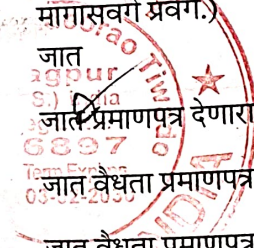 मागासवर्ग प्रवर्ग.)
जात
जात प्रमाणपत्र देणारा
जात वैधता प्रमाणपत्र
जात वैधता प्रमाणपत्र
agpur
S.) India
6897
Term Expires
03-02-2030